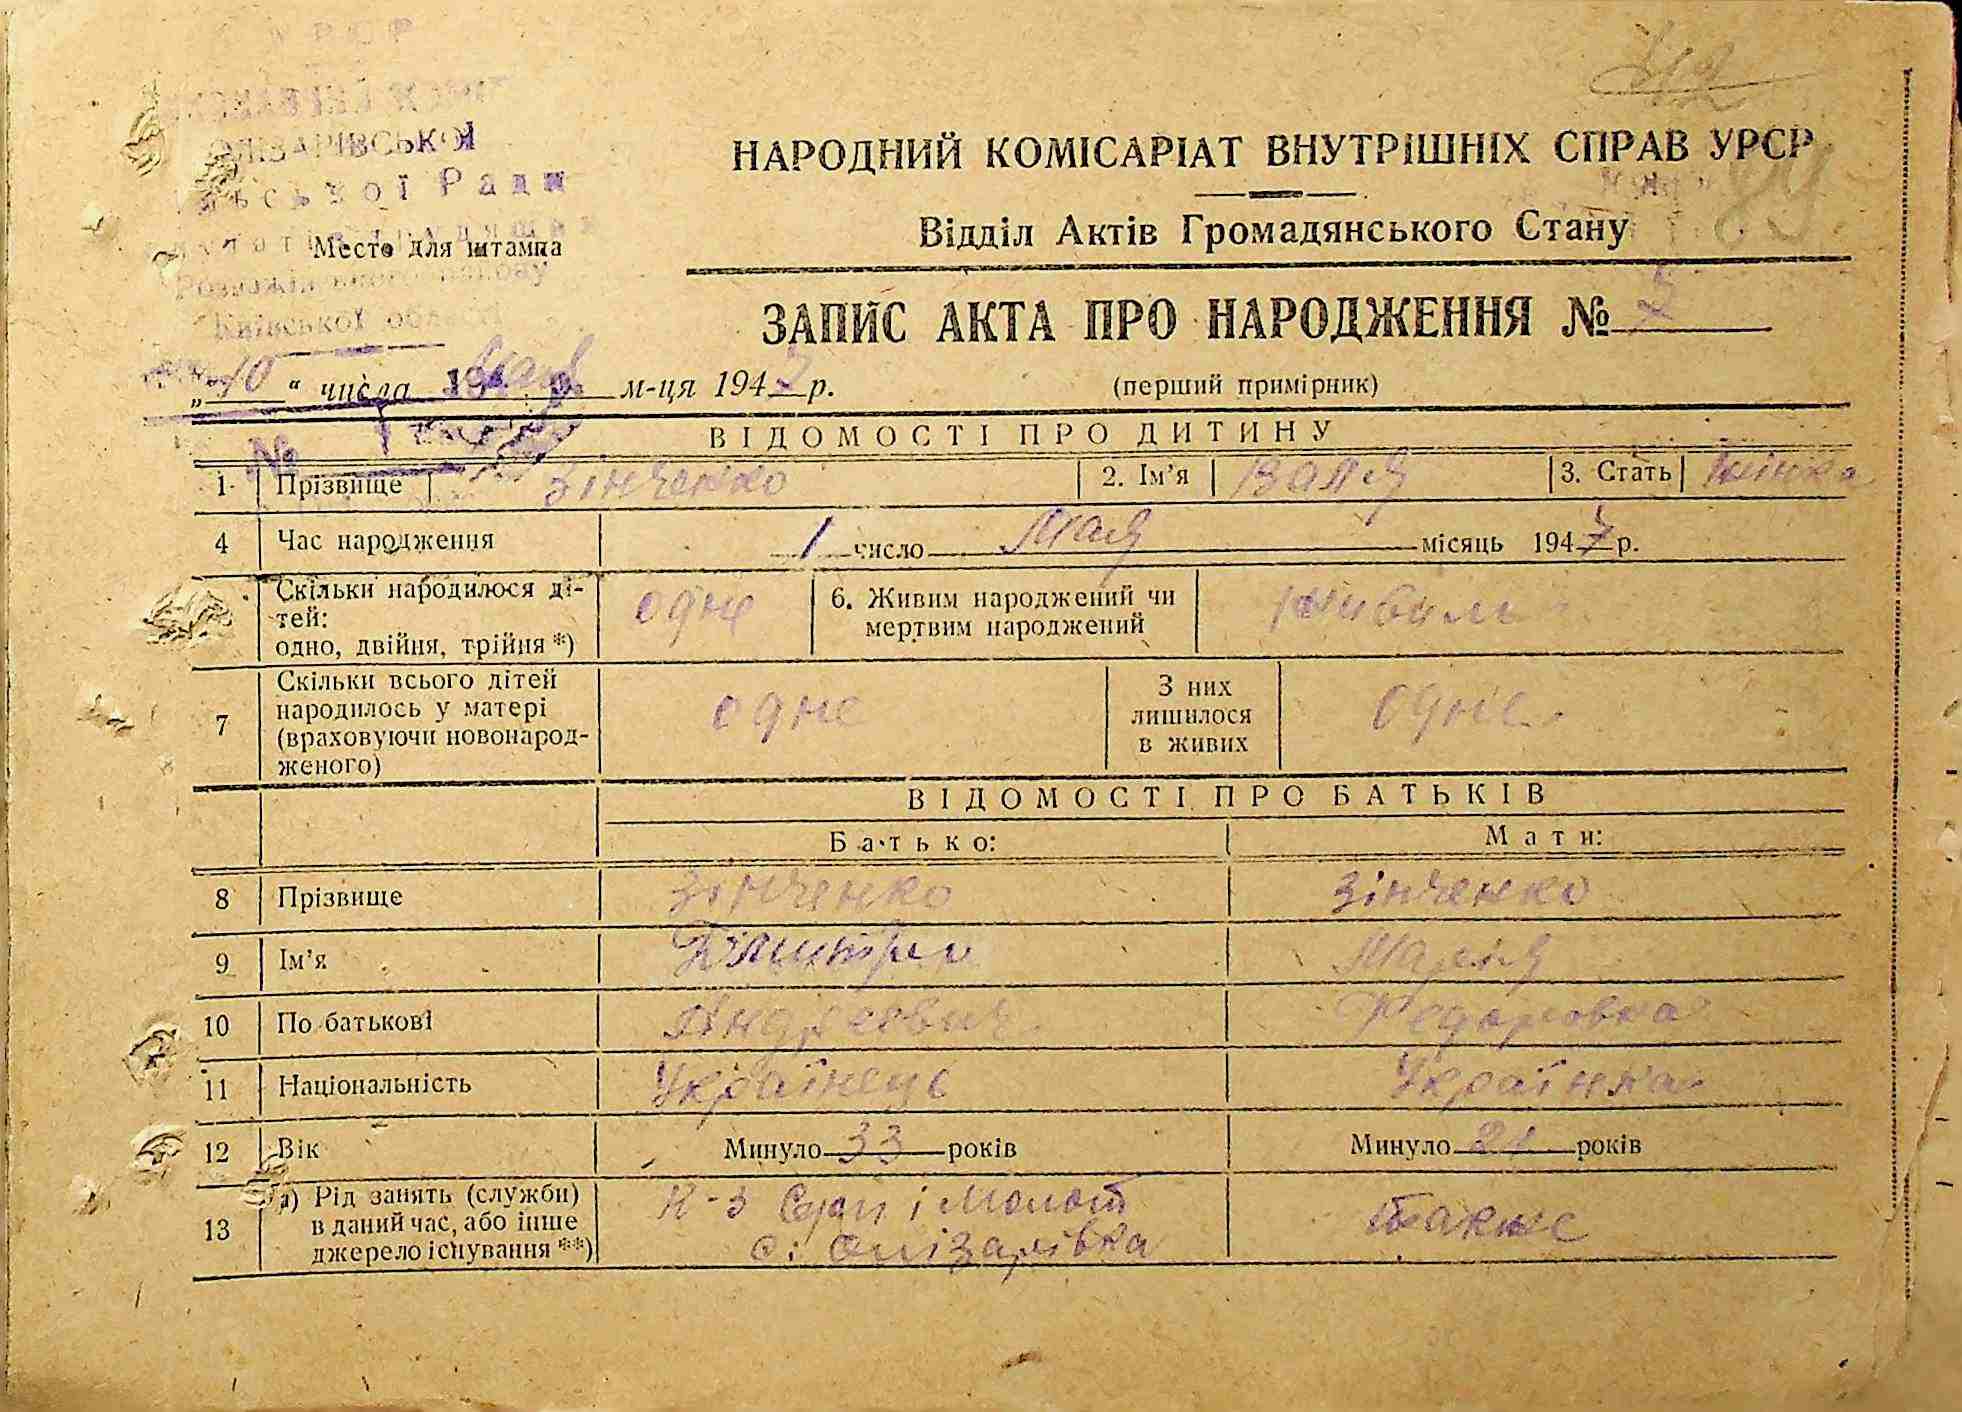 УРСР
ОЛІЗАРІВСЬКОЇ
Ради
Место для штампа
Київської області
НАРОДНИЙ КОМІСАРІАТ ВНУТРІШНІХ СПРАВ УРСР
Відділ Актів Громадянського Стану
ЗАПИС АКТА ПРО НАРОДЖЕННЯ № 5
„10“ числа мая м-ця 1947 р.
(перший примірник)
ВІДОМОСТІ ПРО ДИТИНУ
1 Прізвище Зінченко 2. Ім’я Валя 3. Стать жінка
4 Час народження 1 число Мая місяць 1947 р.
Скільки народилося ді-
тей:
одно, двійня, трійня *) одне 6. Живим народжений чи
мертвим народжений живим
7 Скільки всього дітей
народилось у матері
(враховуючи новонарод-
женого) одне З них
лишилося
в живих одне
ВІДОМОСТІ ПРО БАТЬКІВ
Батько: Мати:
8 Прізвище Зінченко Зінченко
9 Ім’я Дмитро Марія
10 По батькові Андреевич Федоровна
11 Національність Українець Українка
12 Вік Минуло 33 років Минуло 21 років
13 а) Рід занять (служби)
в даний час, або інше
джерело існування **) К-з Серп і Молот
с. Олізарівка также